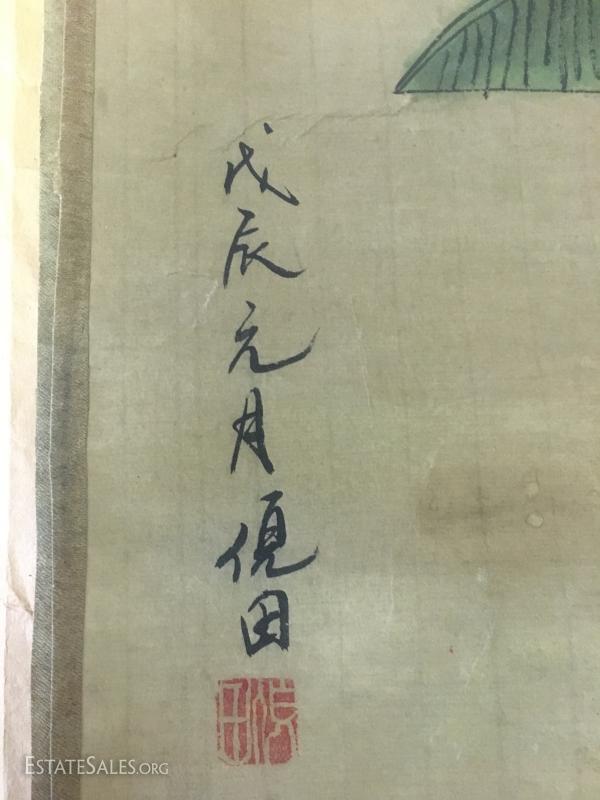 戊辰元月倪田
ESTATESALES.ORG